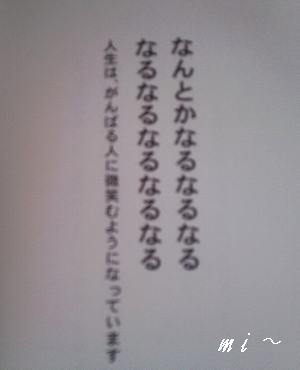 なんとかなるなるなる
なるなるなるなるなる
人生は、がんばる人に微笑むようになっています
mi~